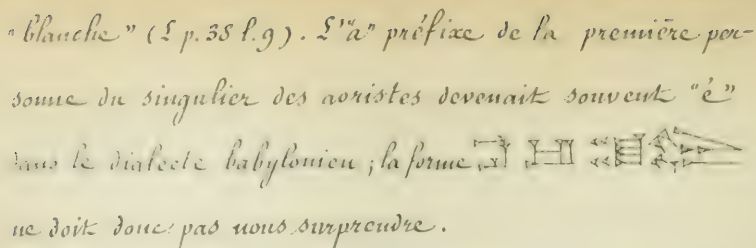 "blanche" (L p. 38 l. 9). L'"a" préfixe de la première per-
sonne du singulier des aoristes devenait souvent "é"
dans le dialecte babylonien ; la forme
ne doit donc pas nous surprendre.